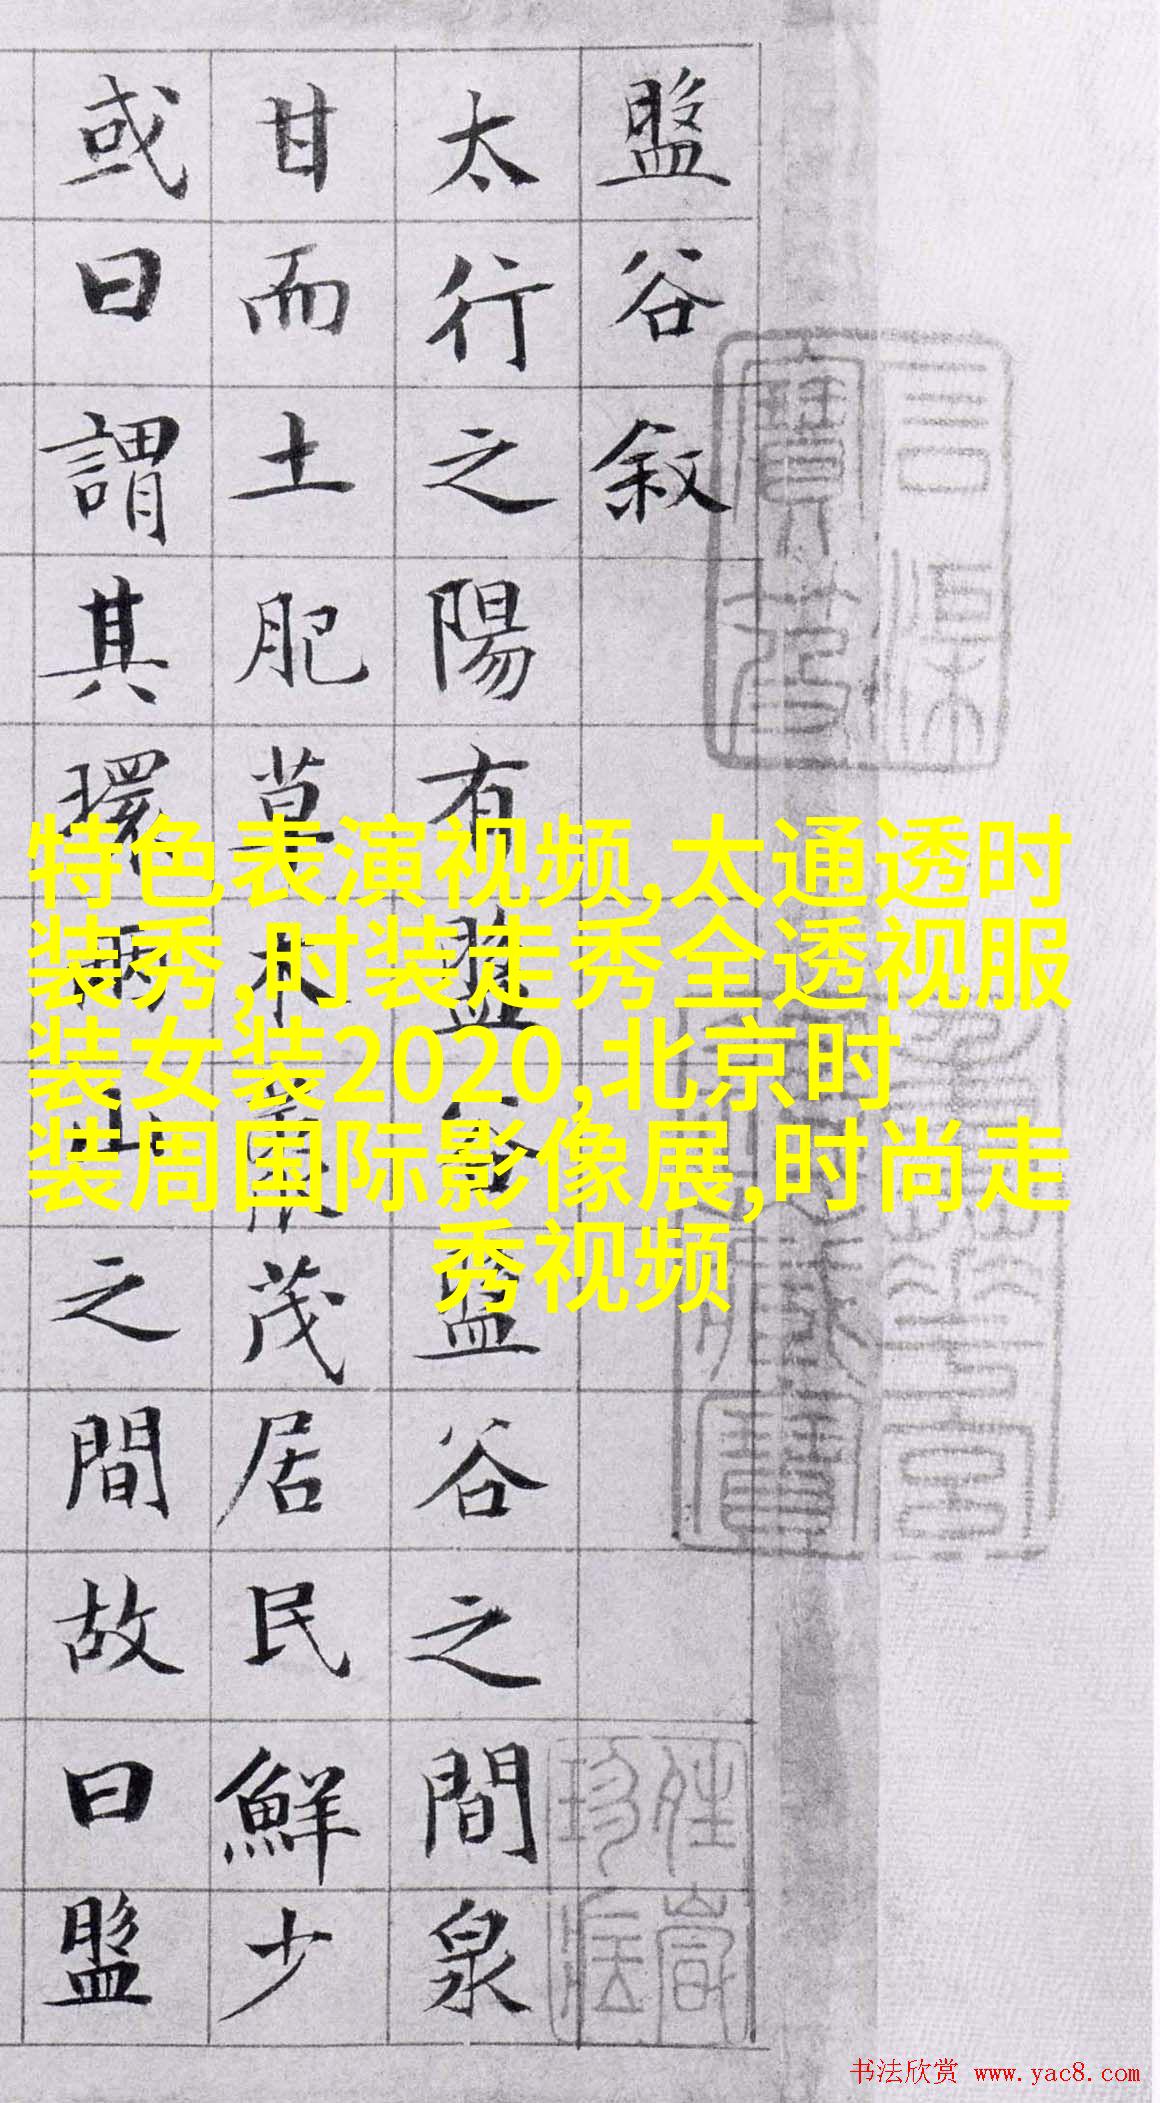 盤谷敘
太行之陽有盤谷盤谷之間泉
甘而土肥草木藂茂居民鮮少
或曰謂其環兩山之間故曰盤
特色表演视频,太通透时
装秀,时装走秀全透视服
装女装2020,北京时
装周国际影像展,时尚走
秀视频
书法欣赏 www.yac8.com